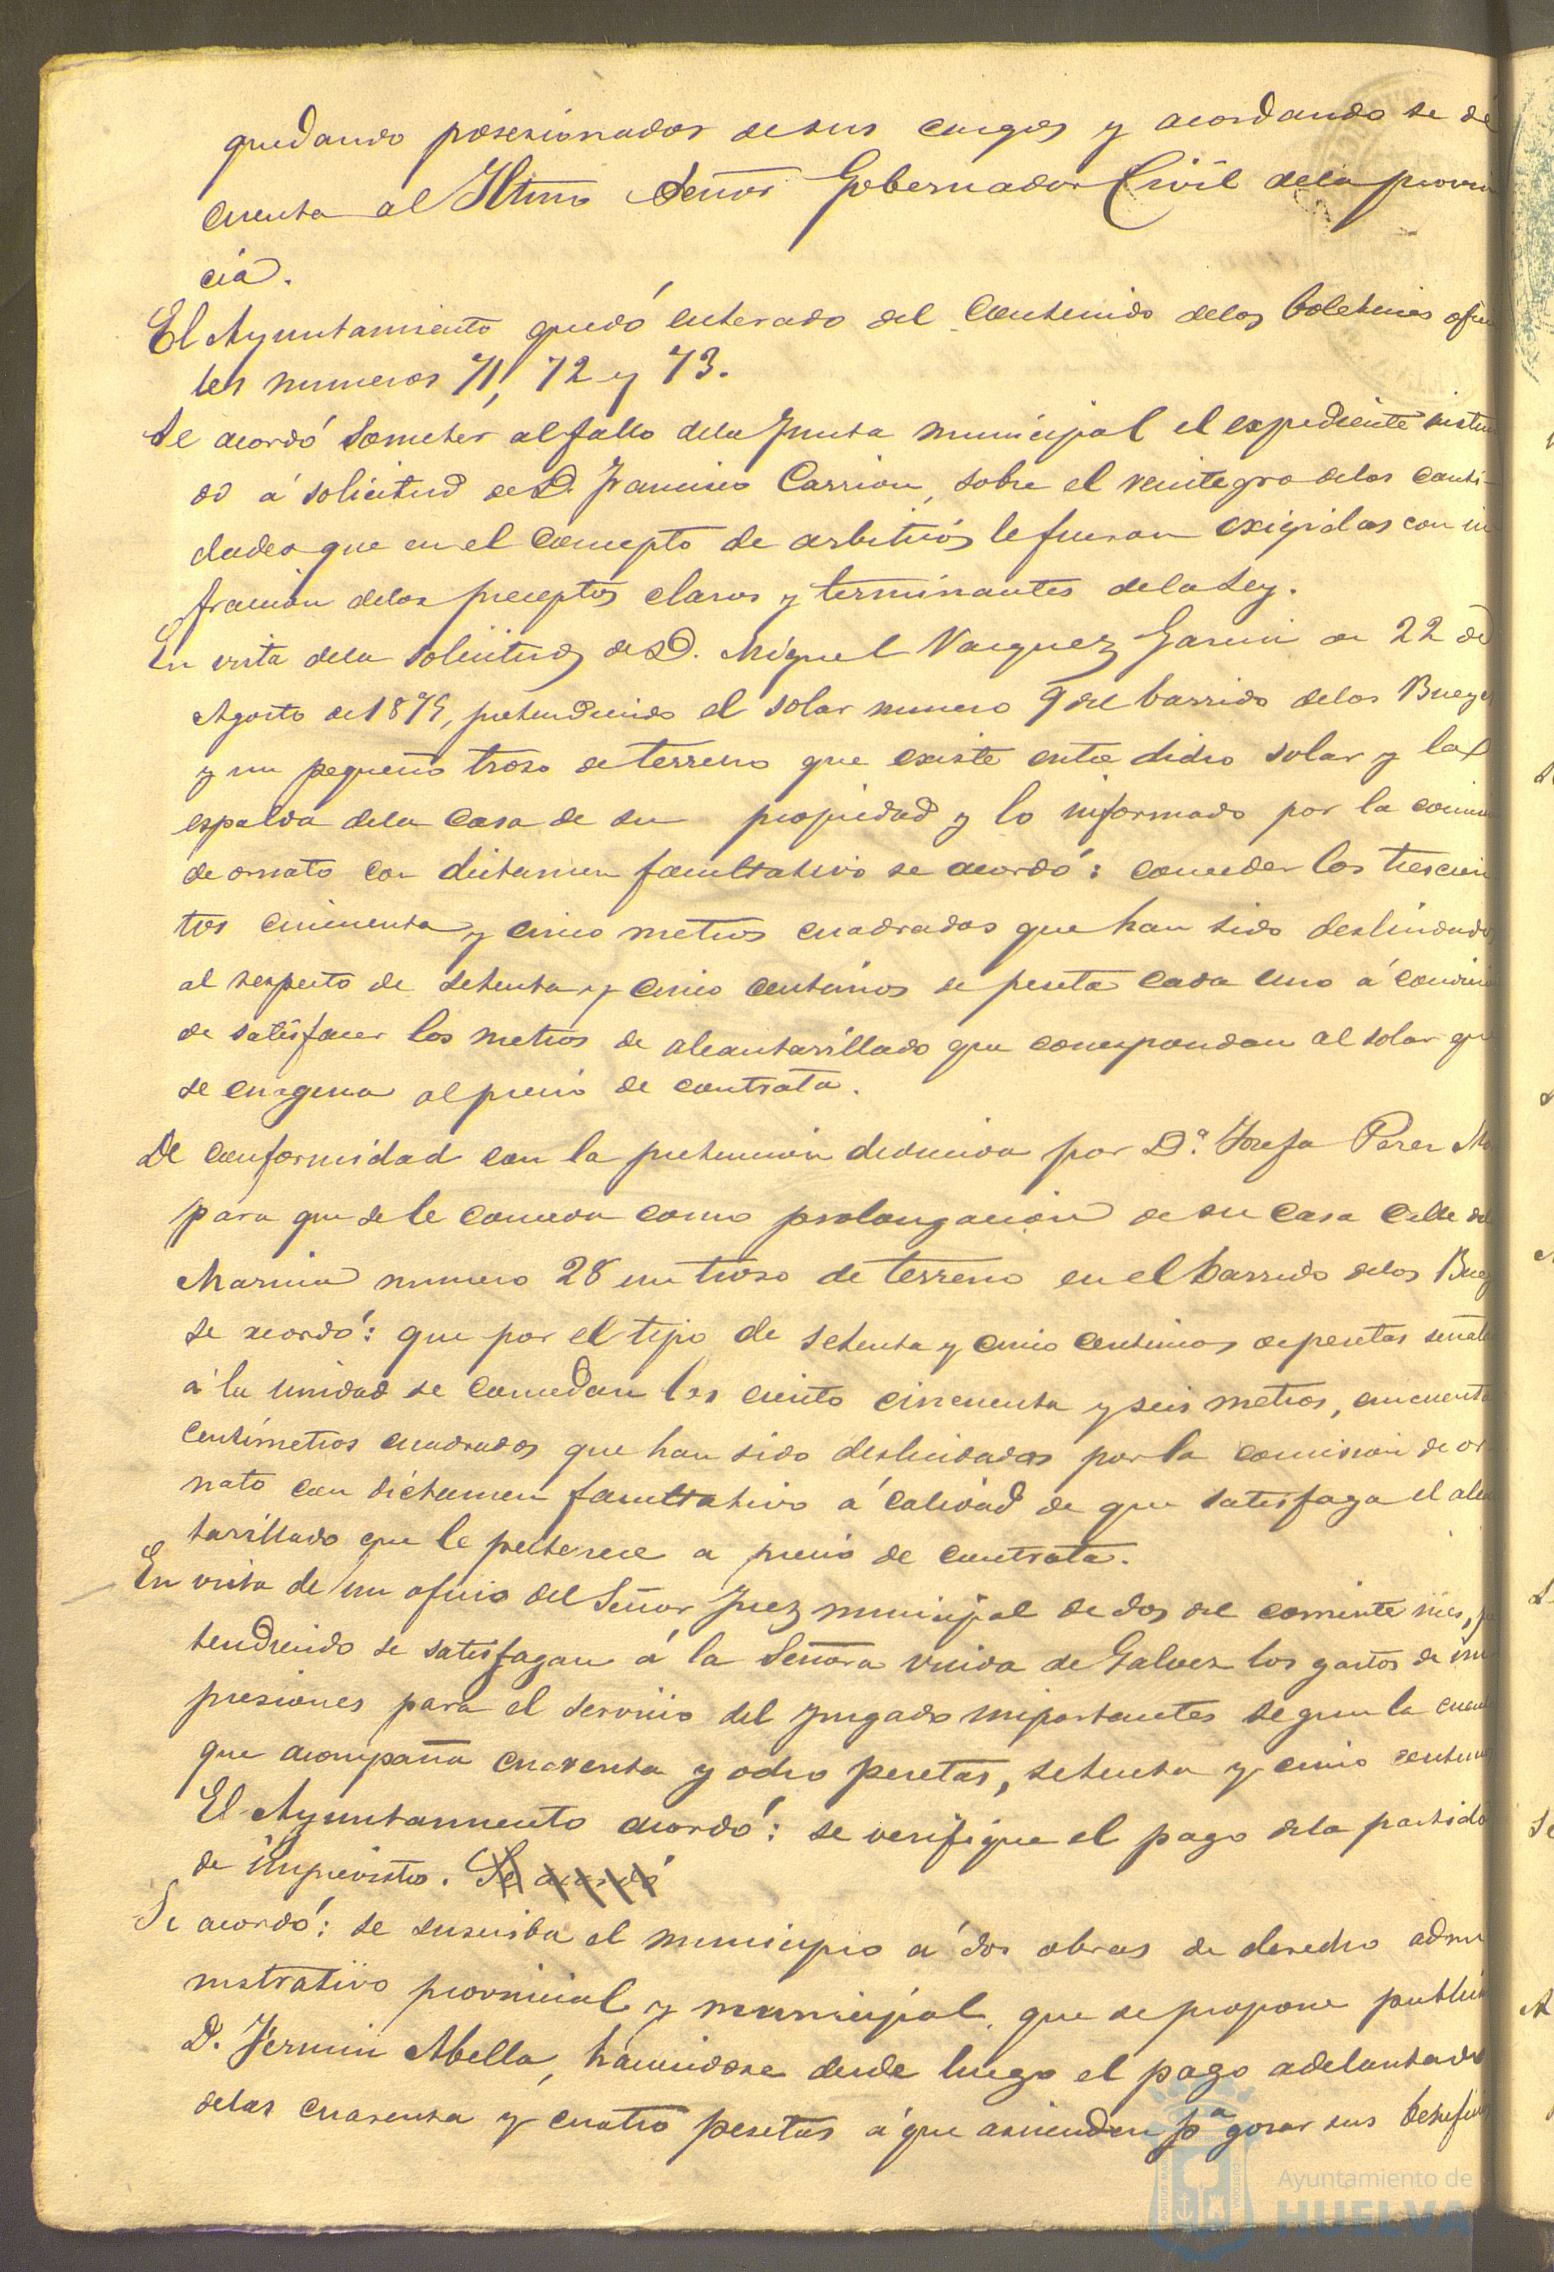 quedando posesionados de sus cargos y acordando se dé
cuenta al Iltmo Señor Gobernador Civil dela provin
cia.
El Ayuntamiento quedó enterado del contenido delos boletines ofici
les numeros 71, 72 y 73.
Se acordó someter al fallo dela Junta municipal el expediente instrui
do á solicitud de D. Francisco Carrion, sobre el reintegro delas canti-
dades que en el concepto de arbitrios le fueron exigidas con in
fracción delos preceptos claros y terminantes dela Ley.
En vista dela solicitud de D. Miguel Vazquez Garcia de 22 de
Agosto de 1879, pretendiendo el solar numero 9 del barrido delos Bueyes
y un pequeño troso de terreno que existe entre dicho solar y la
espalda dela casa de su propiedad y lo informado por la comision
de ornato con dictamen facultativo se acordó: conceder los trescien
tos cincuenta y cinco metros cuadrados que han sido deslindados
al respecto de setenta y cinco centimos de peseta cada uno á condicion
de satisfacer los metros de alcantarillado que correspondan al solar que
se enagena al precio de contrata.
De conformidad con la pretension deducida por Dª. Josefa Perez
para que se le conceda como prolongacion de su casa calle del
Marina numero 28 un troso de terreno en el barrido delos Buey
se acordó: que por el tipo de setenta y cinco centimos de pesetas señala
á la unidad se concedan los ciento cincuenta y seis metros, cincuenta
centímetros cuadrados que han sido deslindados por la comision de or
nato con dictamen facultativo á calidad de que satisfaga el alcan
tarillado que le pertenece a precio de contrata.
En vista de un oficio del Señor Juez municipal de dos del corriente mes, pre
tendiendo se satisfagan á la Señora viuda de Galvez los gastos de im
presiones para el servicio del Jusgado importantes segun la cuenta
que acompaña cuarenta y ocho pesetas, setenta y cinco centimos
El Ayuntamiento acordó: se verifique el pago dela partida
de imprevistos. Se acordó
Se acordó: se suscriba el municipio á dos obras de derecho admi
nistrativo provincial y municipal, que se propone publicar
D. Fermin Abella, haciendose desde luego el pago adelantado
delas cuarenta y cuatro pesetas á que ascienden pª gosar sus beneficios
Ayuntamiento de
HUELVA